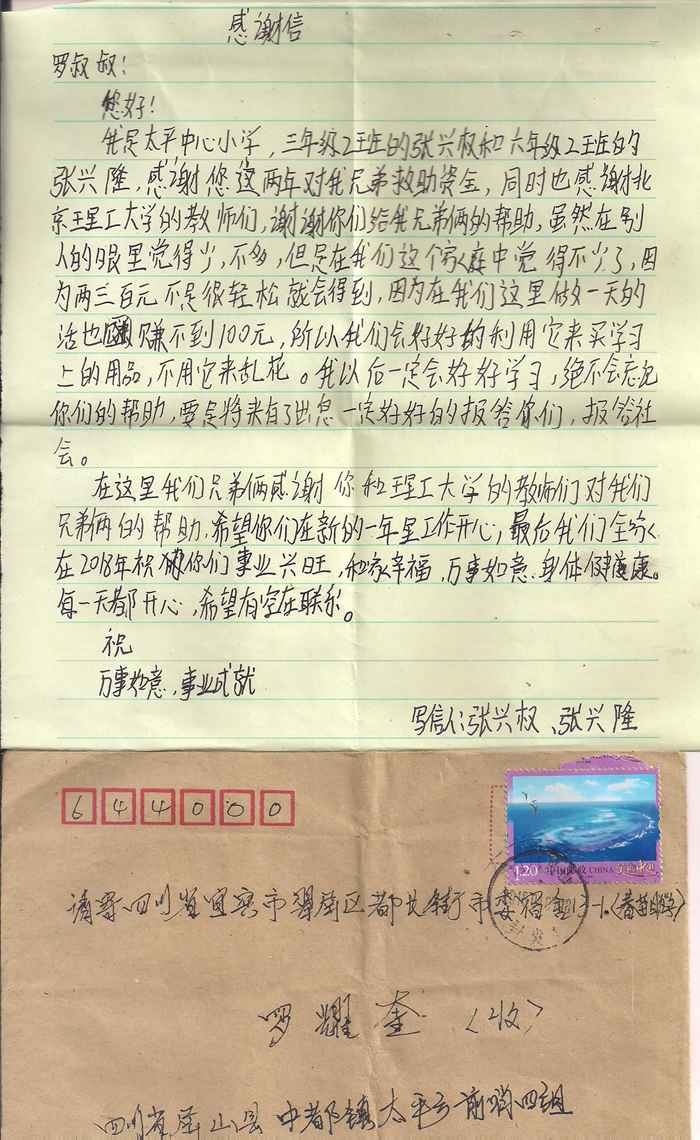 感谢信
罗叔叔：
您好！
我是太平中心小学，三年级2班的张兴权和六年级2班的
张兴隆，感谢您这两年对我兄弟救助资金，同时也感谢北
京理工大学的教师们，谢谢你们给我兄弟俩的帮助，虽然在别
人的眼里觉得少，不多，但是在我们这个家庭中觉得不少了，因
为两三百元不是很轻松就会得到，因为在我们这里做一天的
活也赚不到100元，所以我们会好好的利用它来买学习
上的用品，不用它来乱花。我以后一定会好好学习，绝不会忘记
你们的帮助，要是将来有了出息一定好好的报答你们，报答社
会。
在这里我们兄弟俩感谢你和理工大学的教师们对我们
兄弟俩的帮助，希望你们在新的一年里工作开心，最后我们全家
在2018年祝你们事业兴旺，和家幸福，万事如意、身体健康。
每一天都开心，希望有空在联系。
祝
万事如意，事业成就
写信人：张兴权、张兴隆
644000
1.20 中国邮政 CHINA
请寄四川省宜宾市翠屏区都长街市委宿舍
罗耀奎（收）
四川省屏山县中都镇太平乡前哨四组